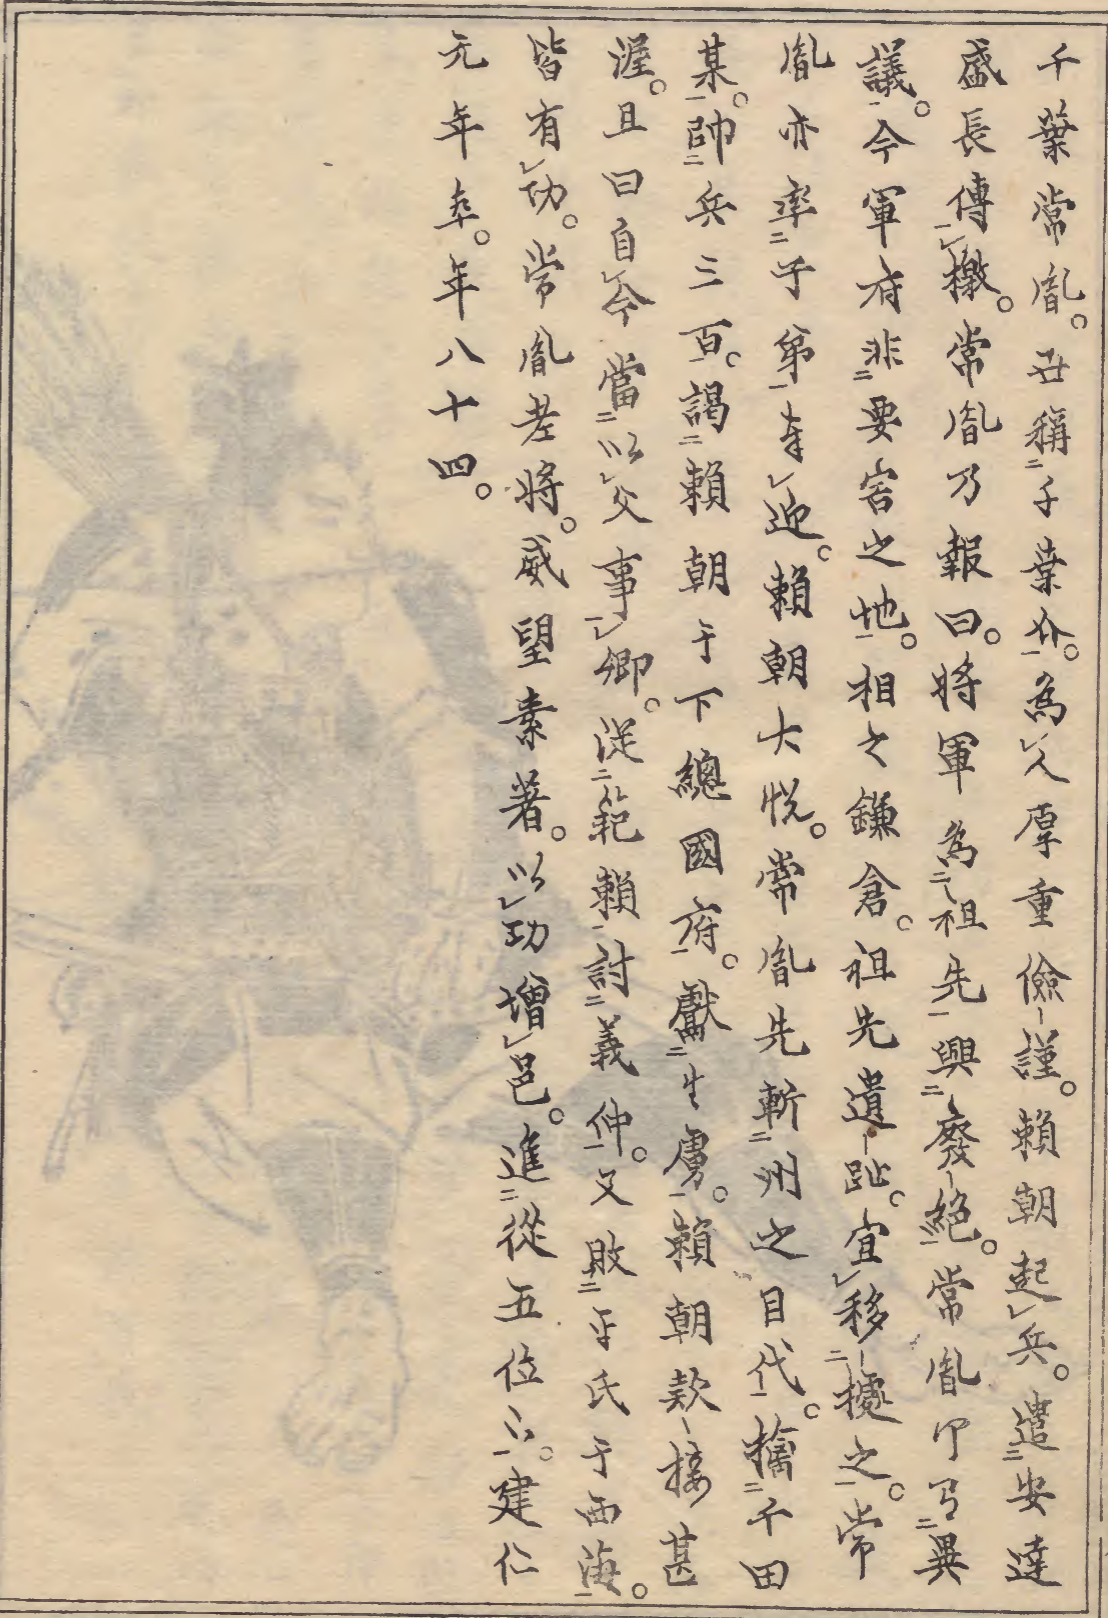 千葉常胤。世稱千葉介。為人厚重儉謹。賴朝起兵。遣安達
盛長傳檄。常胤乃報曰。將軍為祖先興廢絕。常胤何有異
議。今軍府非要害之地。相之鎌倉。祖先遺趾。宜移據之。常
胤亦率子弟奉迎。賴朝大悅。常胤先斬州之目代。擒千田
某。帥兵三百。謁賴朝于下總國府。獻生虜。賴朝款接甚
渥。且曰自今當以父事卿。從範賴討義仲。又敗平氏于西海。
皆有功。常胤老將。威望素著。以功增邑。進從五位下。建仁
元年卒。年八十四。